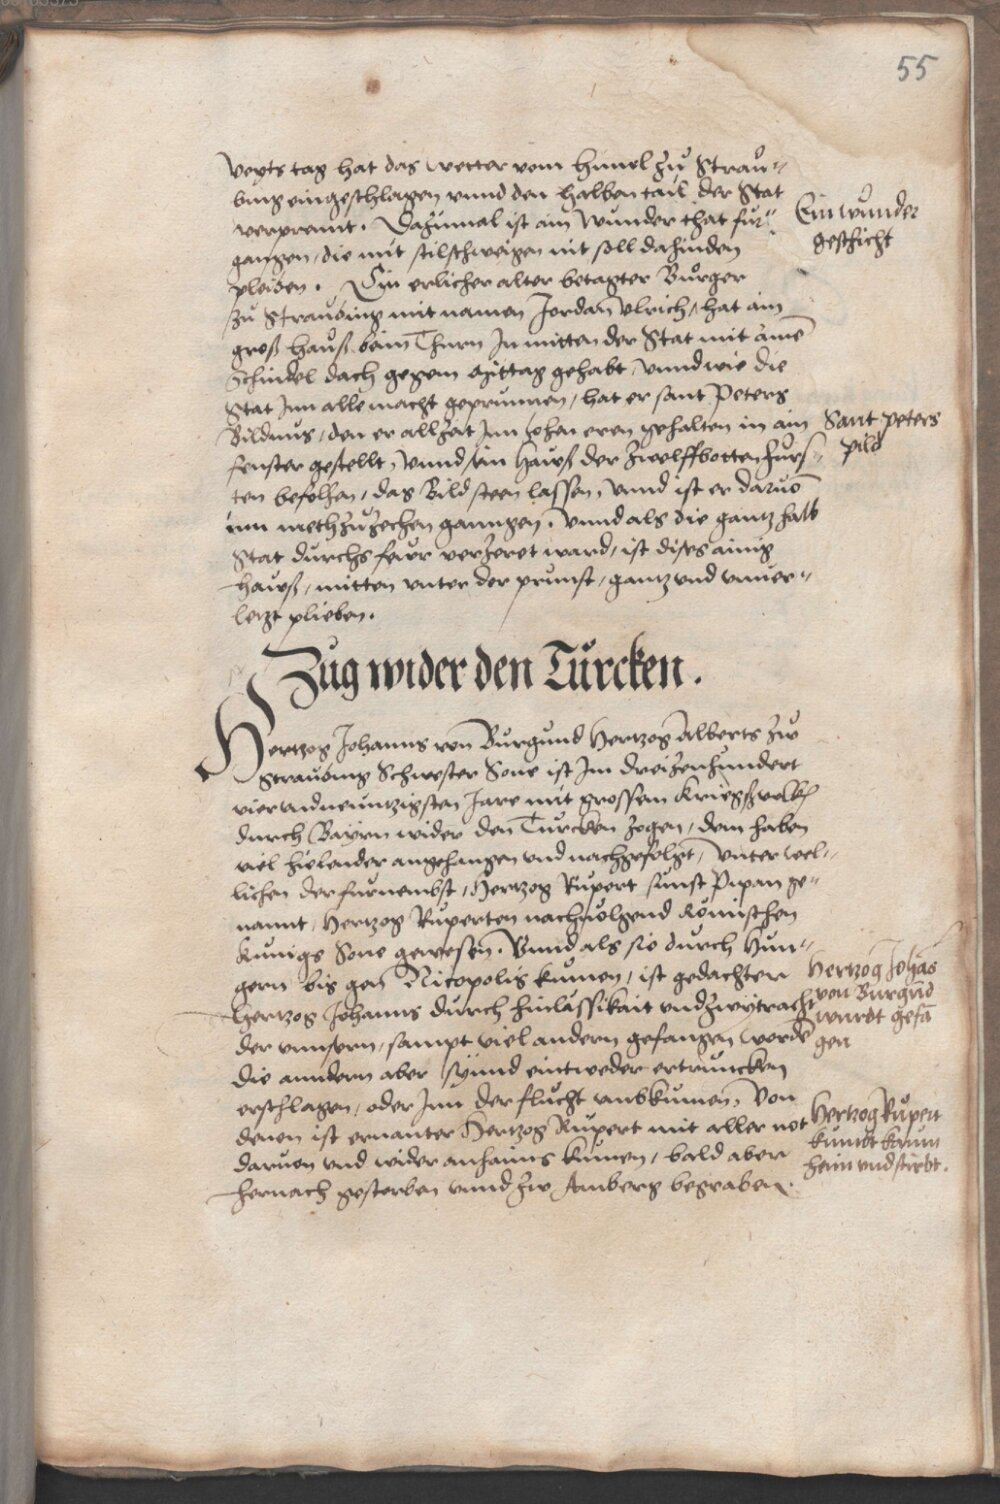 55
Veyts tag hat das wetter vom himel zů Strau-
bing eingeschlagen vnnd den halben tail der Stat
verprennt. Dazumal ist ain wunder that für-
gangen, die mit stilschweigen nit soll dahinden
pleiben. Ein erlicher alter betagter Burger
zu Straubing mit namen Jordan Vlrich, hat ain
groß hauß beim Thurn In mitten der Stat mit aime
Schindel dach gegem Mittag gehabt, Vnnd wie die
Stat Inn alle macht geprunnen, hat er sant Peters
Bildnus, den er allzeit Inn hohen eren gehalten in ain
fenster gestellt, Vnnd sein hauß der zwelffbotten fürs-
ten befolhen, das Bild steen lassen, Vnnd ist er daruō
inn meth zů zechen ganngen. Vnnd als die gantz halb
Stat durchs fewr verzeret ward, ist dises ainig
hauß, mitten vnter der prunst, gantz vnd vnuer-
letzt plieben.
Ein wunder
geschicht
Sant peters
pild
Zug wider den Türcken.
Hertzog Johanns von Burgund Hertzog Alberts zw
Straubing Schwester Sone ist Im dreizehenhundert
vierundneuntzigsten Jare mit grossem Kriegßvolckh
durch Bayrn wider den Turcken zogen, dem haben
viel hielender angehangen vnd nachgefolgt, Vnter wel-
lichen der furnembst, Hertzog Rupert sunst Pipan ge-
nannt, Hertzog Ruperten nachvolgend Römischen
Kunigs Sone gewesen. Vnnd als sie durch Hun-
gern bis gen Nicopolis kumen, ist gedachter
Hertzog Johanns durch hinlässikait vnd zwytracht
der vnnsern, sampt viel andern gefangen wordē
die anndern aber synnd eintweder ertruncken
erschlagen, oder Inn der flucht vmbkumen, Von
denen ist ernanter Hertzog Rupert mit aller not
daruon vnd wider anhaims kumen, bald aber
hernach gestorben vnnd zw Amberg begraben.
Hertzog Johās
von Burgūd
wurdt gefā
gen
Hertzog Rupert
kumbt kaum
heim vnd stirbt.